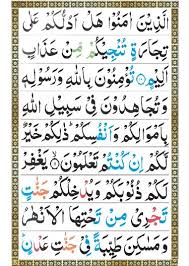 الَّذِيْنَ اٰمَنُوْا هَلْ اَدُلُّكُمْ عَلٰى
تِجَارَةٍ تُنْجِيْكُمْ مِّنْ عَذَابٍ
اَلِيْمٍ ۝ تُؤْمِنُوْنَ بِاللّٰهِ وَرَسُوْلِهٖ
وَتُجَاهِدُوْنَ فِيْ سَبِيْلِ اللّٰهِ
بِاَمْوَالِكُمْ وَاَنْفُسِكُمْ ذٰلِكُمْ خَيْرٌ
لَّكُمْ اِنْ كُنْتُمْ تَعْلَمُوْنَ ۝ يَغْفِرْ
لَكُمْ ذُنُوْبَكُمْ وَيُدْخِلْكُمْ جَنّٰتٍ
تَجْرِيْ مِنْ تَحْتِهَا الْاَنْهٰرُ
وَمَسٰكِنَ طَيِّبَةً فِيْ جَنّٰتِ عَدْنٍ